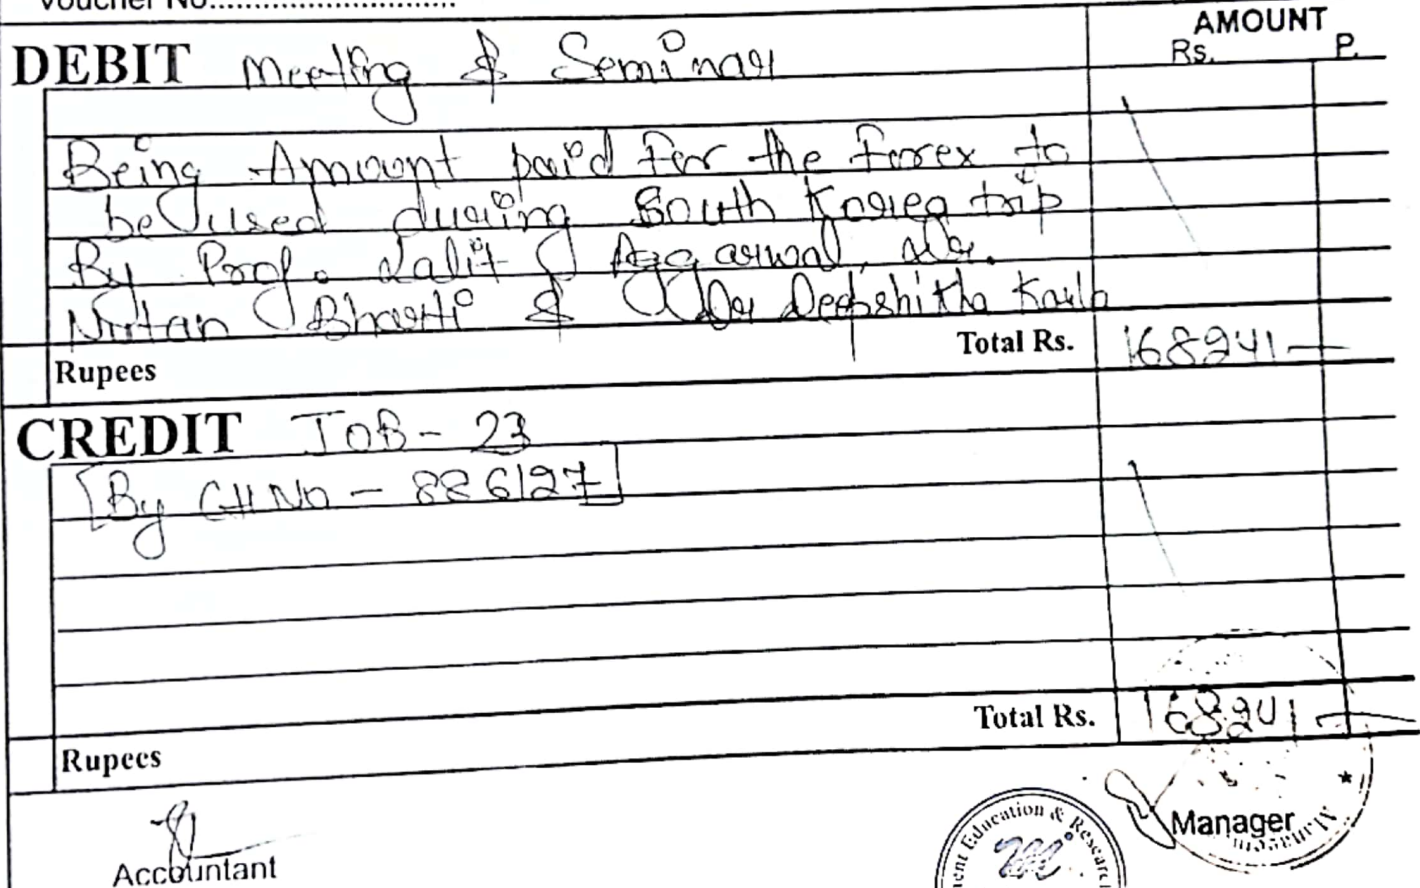 Voucher No..............................
AMOUNT
Rs. P.
DEBIT Meeting & Seminar
Being Amount paid for the forex to
be used during South Korea trip
By Prof. Lalit Aggarwal, Dr.
Nutan Bharti & Dr Deepshikha Kalra
Total Rs. 168241—
Rupees
CREDIT IOB - 23
[By CH No - 886127]
Total Rs. 168241—
Rupees
Education & Research
Manager
Accountant